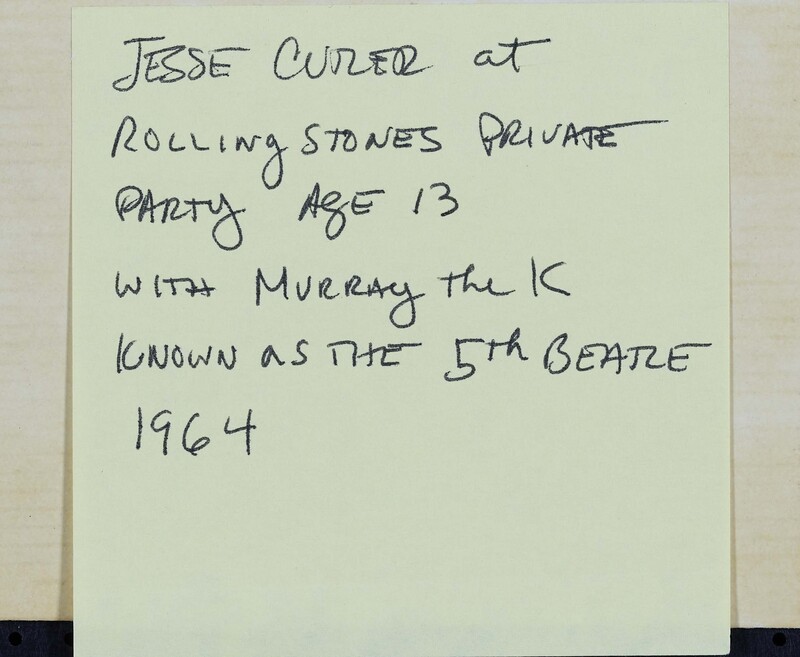 JESSE CUTLER at
ROLLING STONES PRIVATE
PARTY AGE 13
WITH MURRAY the K
KNOWN as THE 5th BEATLE
1964